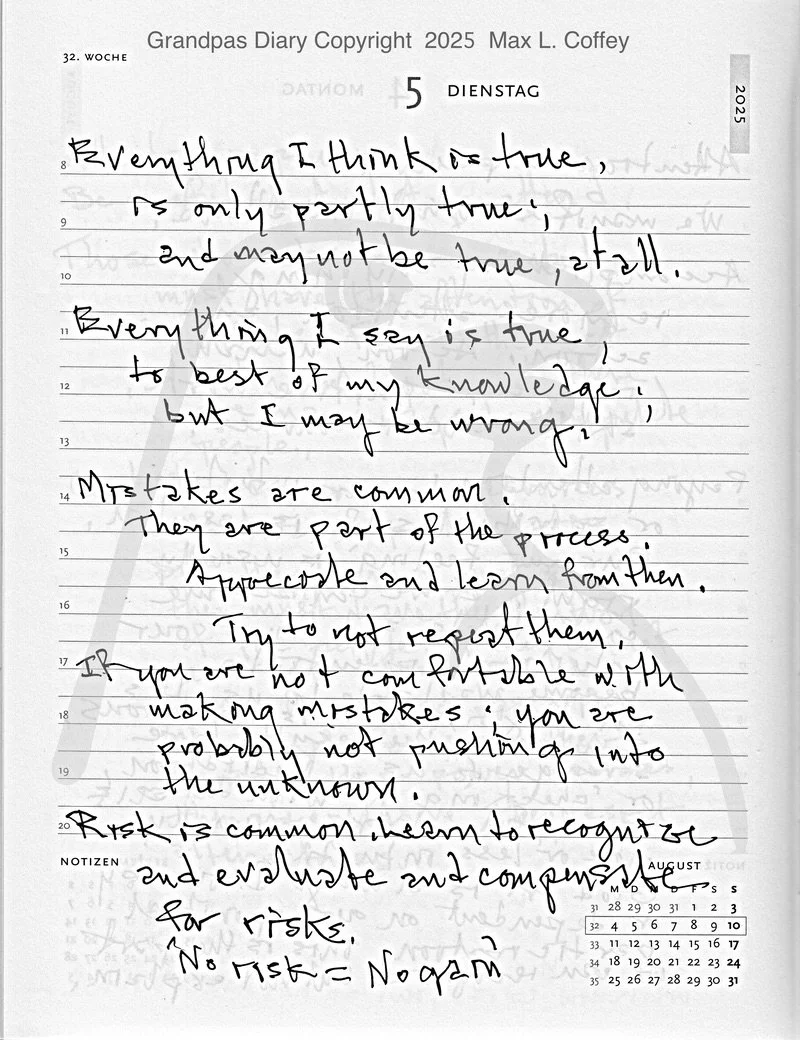 Grandpas Diary Copyright 2025 Max L. Coffey
32. WOCHE
5 DIENSTAG
2025
8 Everything I think is true,
is only partly true;
9
and may not be true, at all.
10
11 Everything I say is true,
to best of my knowledge;
12
but I may be wrong.
13
14 Mistakes are common.
They are part of the process.
15
Apprecoate and learn from then.
16
Try to not repeat them.
17 If you are not comfortable with
making mistakes; you are
18
probably not pushing into
19
the unknown.
20 Risk is common. Learn to recognize
NOTIZEN
and evaluate and compensate
for risks.
"No risk = No gain"
AUGUST
M D M D F S S
31 28 29 30 31 1 2 3
32 4 5 6 7 8 9 10
33 11 12 13 14 15 16 17
34 18 19 20 21 22 23 24
35 25 26 27 28 29 30 31